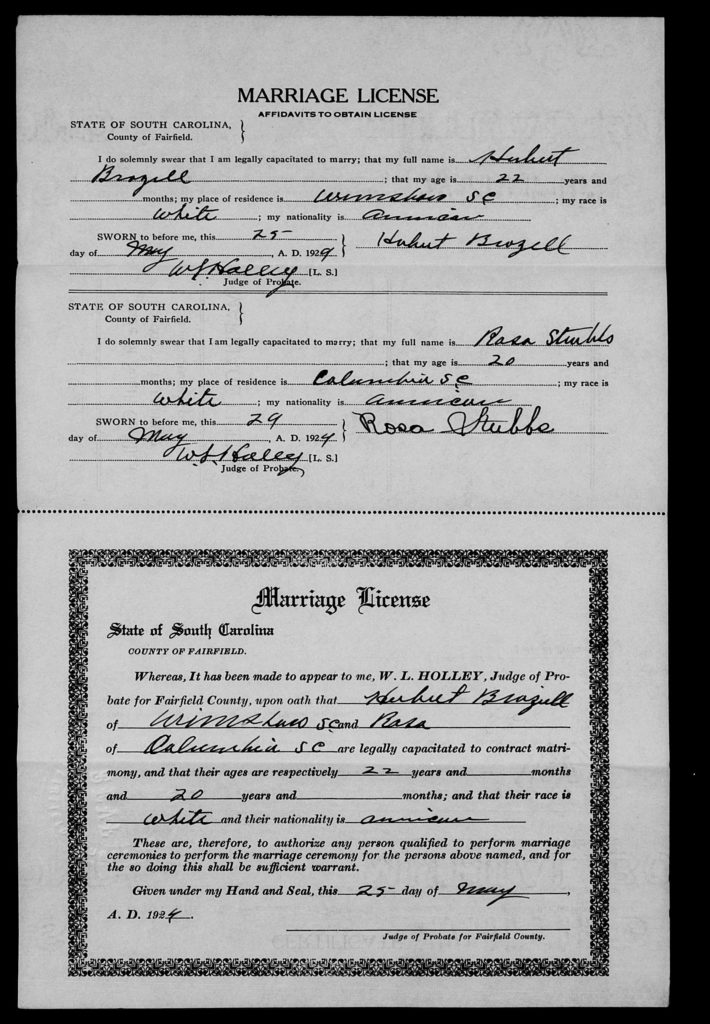 MARRIAGE LICENSE
AFFIDAVITS TO OBTAIN LICENSE
STATE OF SOUTH CAROLINA,
County of Fairfield.
I do solemnly swear that I am legally capacitated to marry; that my full name is Hubert
Brazell ; that my age is 22 years and
months; my place of residence is SC ; my race is
White ; my nationality is American
SWORN to before me, this 25 Hubert Brazell
day of May , A. D. 1924
W L Holley [L. S.]
Judge of Probate.
STATE OF SOUTH CAROLINA,
County of Fairfield.
I do solemnly swear that I am legally capacitated to marry; that my full name is Rosa Stubbs
; that my age is 20 years and
months; my place of residence is Columbia SC ; my race is
White ; my nationality is American
SWORN to before me, this 29 Rosa Stubbs
day of May , A. D. 1924
W. L. Holley [L. S.]
Judge of Probate.
Marriage License
State of South Carolina
COUNTY OF FAIRFIELD.
Whereas, It has been made to appear to me, W. L. HOLLEY, Judge of Pro-
bate for Fairfield County, upon oath that Hubert Brazell
of SC and Rosa
of Columbia SC are legally capacitated to contract matri-
mony, and that their ages are respectively 22 years and months
and 20 years and months; and that their race is
White and their nationality is American
These are, therefore, to authorize any person qualified to perform marriage
ceremonies to perform the marriage ceremony for the persons above named, and for
the so doing this shall be sufficient warrant.
Given under my Hand and Seal, this 25 day of May ,
A. D. 1924.
Judge of Probate for Fairfield County.